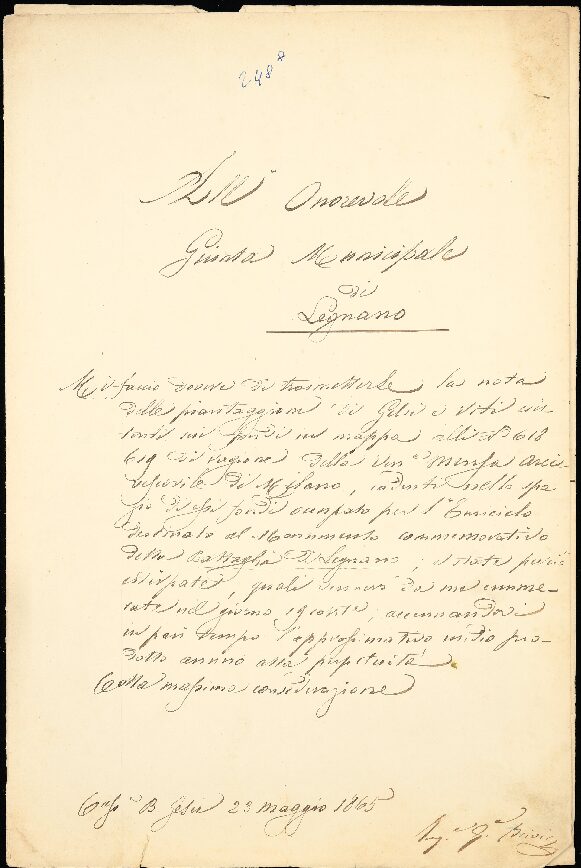 248
All' Onorevole
Giunta Municipale
di
Legnano
Mi faccio dovere di trasmetterle la nota
delle piantaggioni di Gelsi e viti esis-
tenti sui fondi in mappa alli N° 618
619 di ragione della Mensa Arci-
vescovile di Milano, cadenti nello spa-
zio di essi fondi occupato per l'
destinato al Monumento commemorativo
della Battaglia di Legnano, e state perciò
estirpate, quali vennero da me nume-
rate nel giorno 19 corr.te, accennandovi
in pari tempo l'approssimativo medio pro-
dotto annuo alla perpetuità.
Colla massima considerazione
B 23 maggio 1865
Ing.e